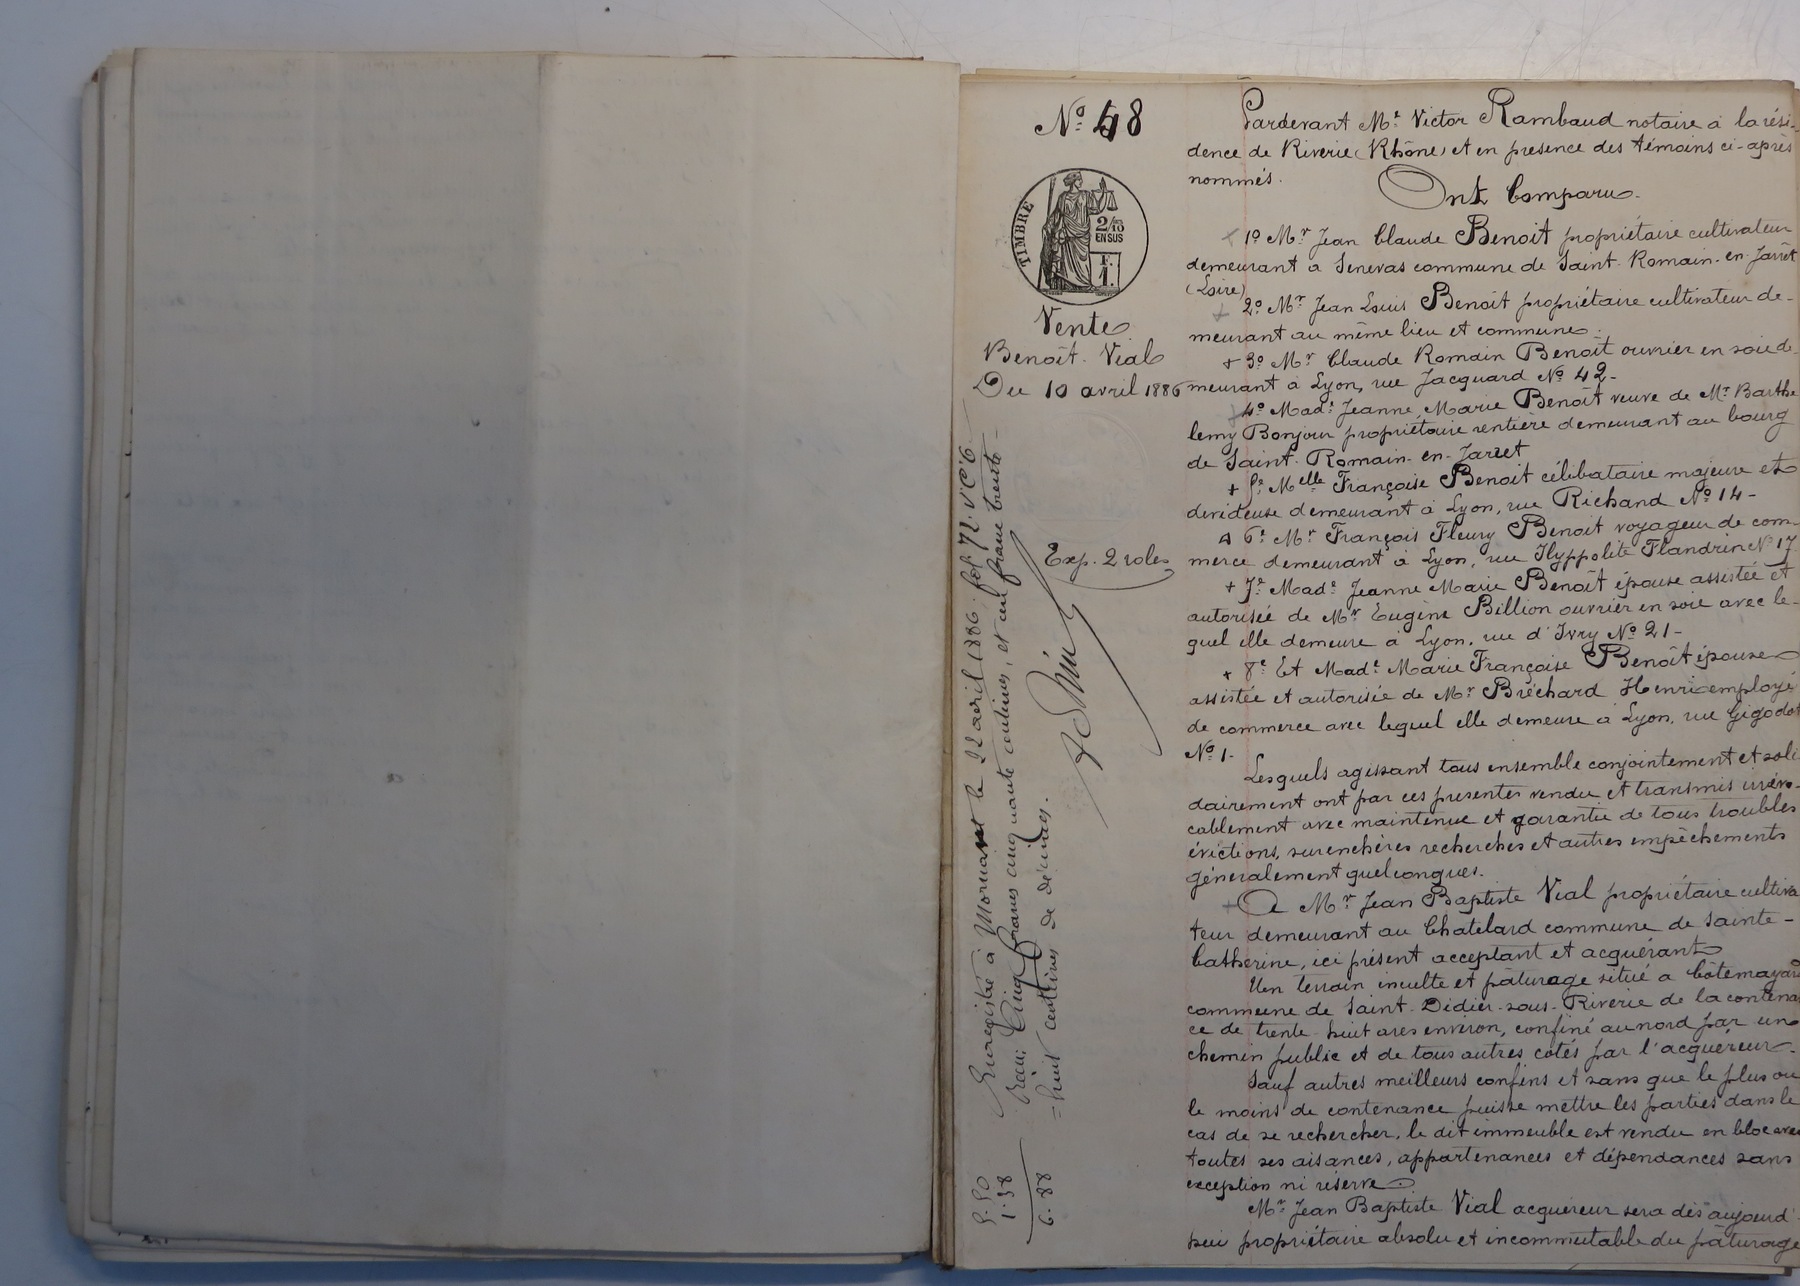 Nº 48
TIMBRE
2/10 EN SUS
F. 1.
Vente
Benoît. Vial
Du 10 avril 1886
Exp. 2 roles
Enregistré à Mornant le 22 avril 1886. fol 72. V. C. 6.
Reçu: Cinq francs cinquante centimes, et un franc trente-
=huit centimes de décimes.
5.50
1.38
6.88
Pardevant Me Victor Rambaud notaire à la rési-
dence de Riverie (Rhône) et en presence des témoins ci-après
nommés.
Ont Comparu
1º Mr Jean Claude Benoit propriétaire cultivateur
demeurant à Senevas commune de Saint-Romain-en-Jarrêt
(Loire)
2º Mr Jean Louis Benoit propriétaire cultivateur de-
meurant au même lieu et commune.
+ 3º Mr Claude Romain Benoît ouvrier en soie de-
meurant à Lyon, rue Jacquard Nº 42-
4º Made Jeanne Marie Benoît veuve de Mr Barthe
lemy Bonjour propriétaire rentière demeurant au bourg
de Saint-Romain-en-Jarret
+ 5e Melle Françoise Benoit célibataire majeure et
devideuse demeurant à Lyon, rue Richand Nº 14-
6e Mr François Fleury Benoit voyageur de com-
merce demeurant à Lyon, rue Hyppolite Flandrin Nº 17
+ 7e Made Jeanne Marie Benoît épouse assistée et
autorisée de Mr Eugène Billion ouvrier en soie avec le-
quel elle demeure à Lyon, rue d'Ivry Nº 21-
+ 8e Et Made Marie Françoise Benoît épouse
assistée et autorisée de Mr Bréchard Henri employé
de commerce avec lequel elle demeure à Lyon, rue Gigodot
Nº 1-
Lesquels agissant tous ensemble conjointement et soli
dairement ont par ces presentes vendu et transmis irrévo-
cablement avec maintenue et garantie de tous troubles
évictions, surenchères recherches et autres empêchements
généralement quelconques.
+ A Mr Jean Baptiste Vial propriétaire cultiva
teur demeurant au Chatelard commune de Sainte-
Catherine, ici présent acceptant et acquérant
Un terrain inculte et pâturage situé à Côtemayard
commune de Saint-Didier-sous-Riverie de la contenan
ce de trente-huit ares environ, confiné au nord par un
chemin public et de tous autres cotés par l'acquéreur.
Sauf autres meilleurs confins et sans que le plus ou
le moins de contenance puisse mettre les parties dans le
cas de se rechercher, le dit immeuble est vendu en bloc avec
toutes ses aisances, appartenances et dépendances sans
exception ni réserve
Mr Jean Baptiste Vial acquereur sera dès aujourd'
hui propriétaire absolu et incommutable du pâturage